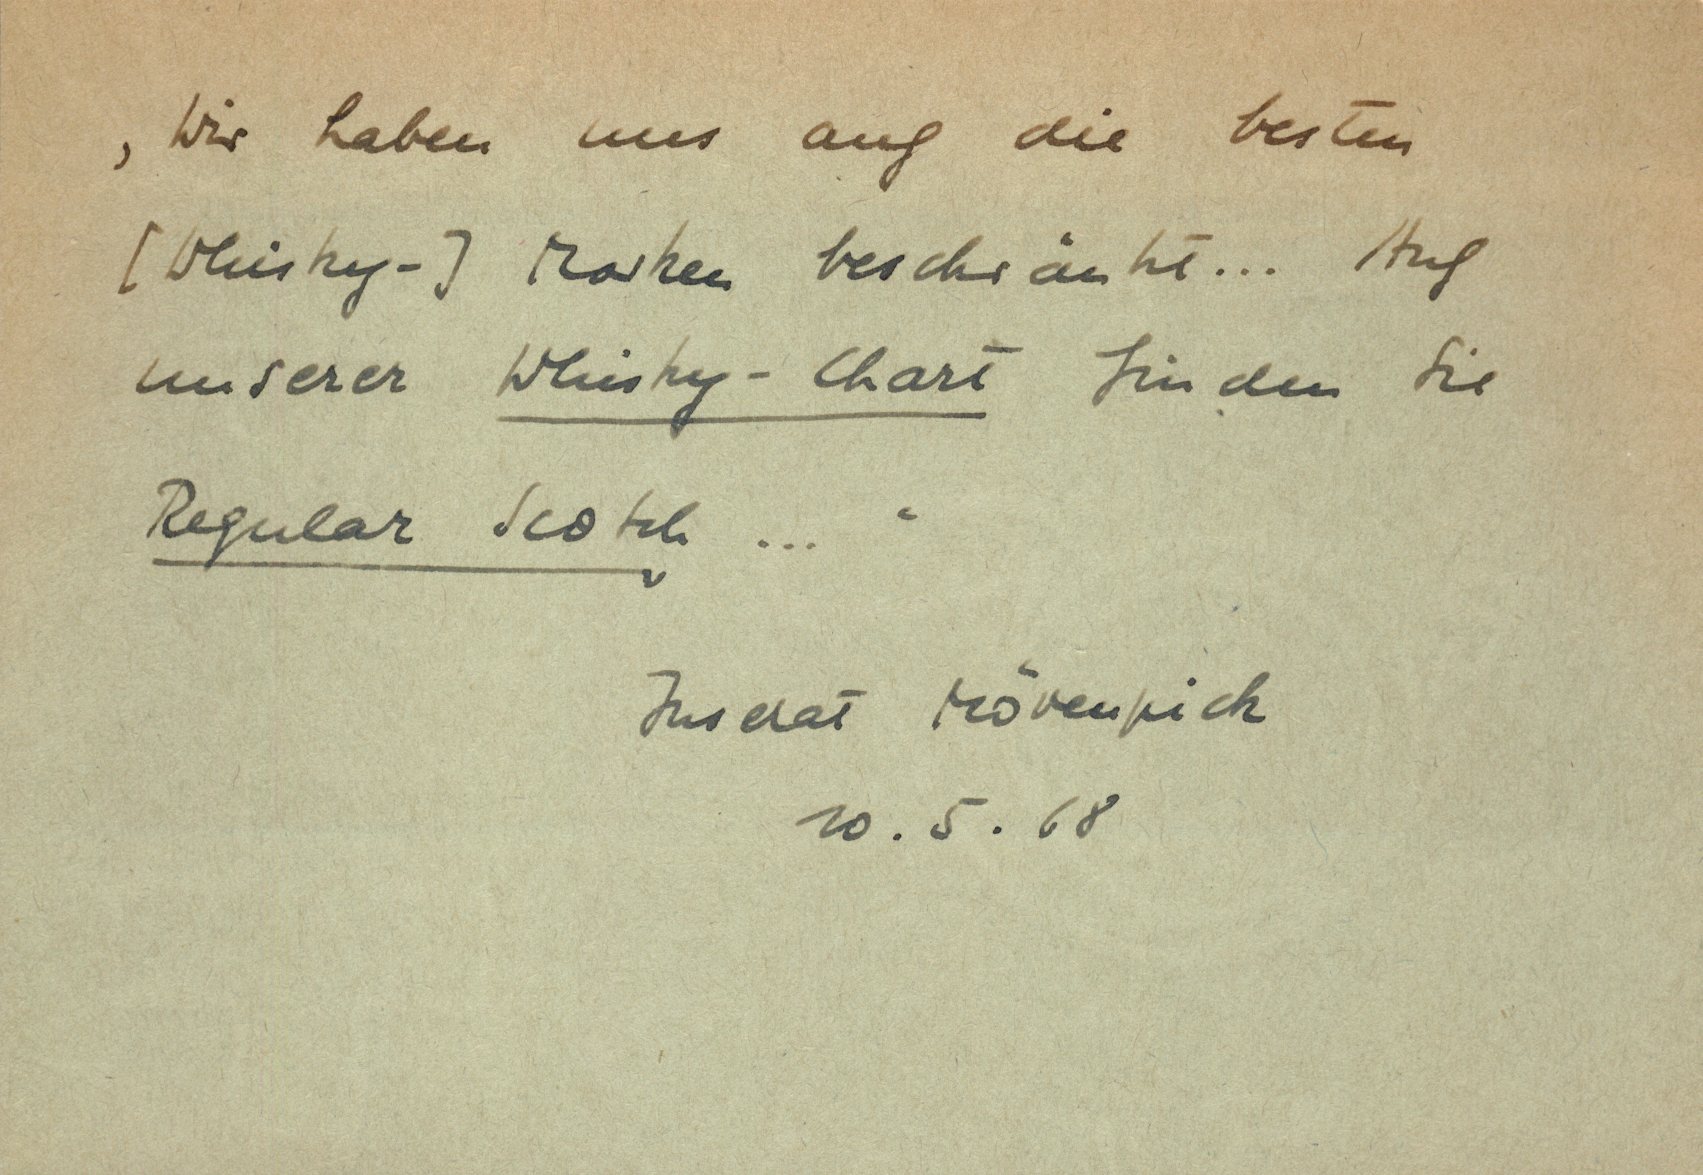 ‚Wir haben uns auf die besten
[Whisky-] Marken beschränkt... Auf
unserer Whisky-Chart finden Sie
Regular Scotch ... ‘
Inserat Mövenpick
10.5.68